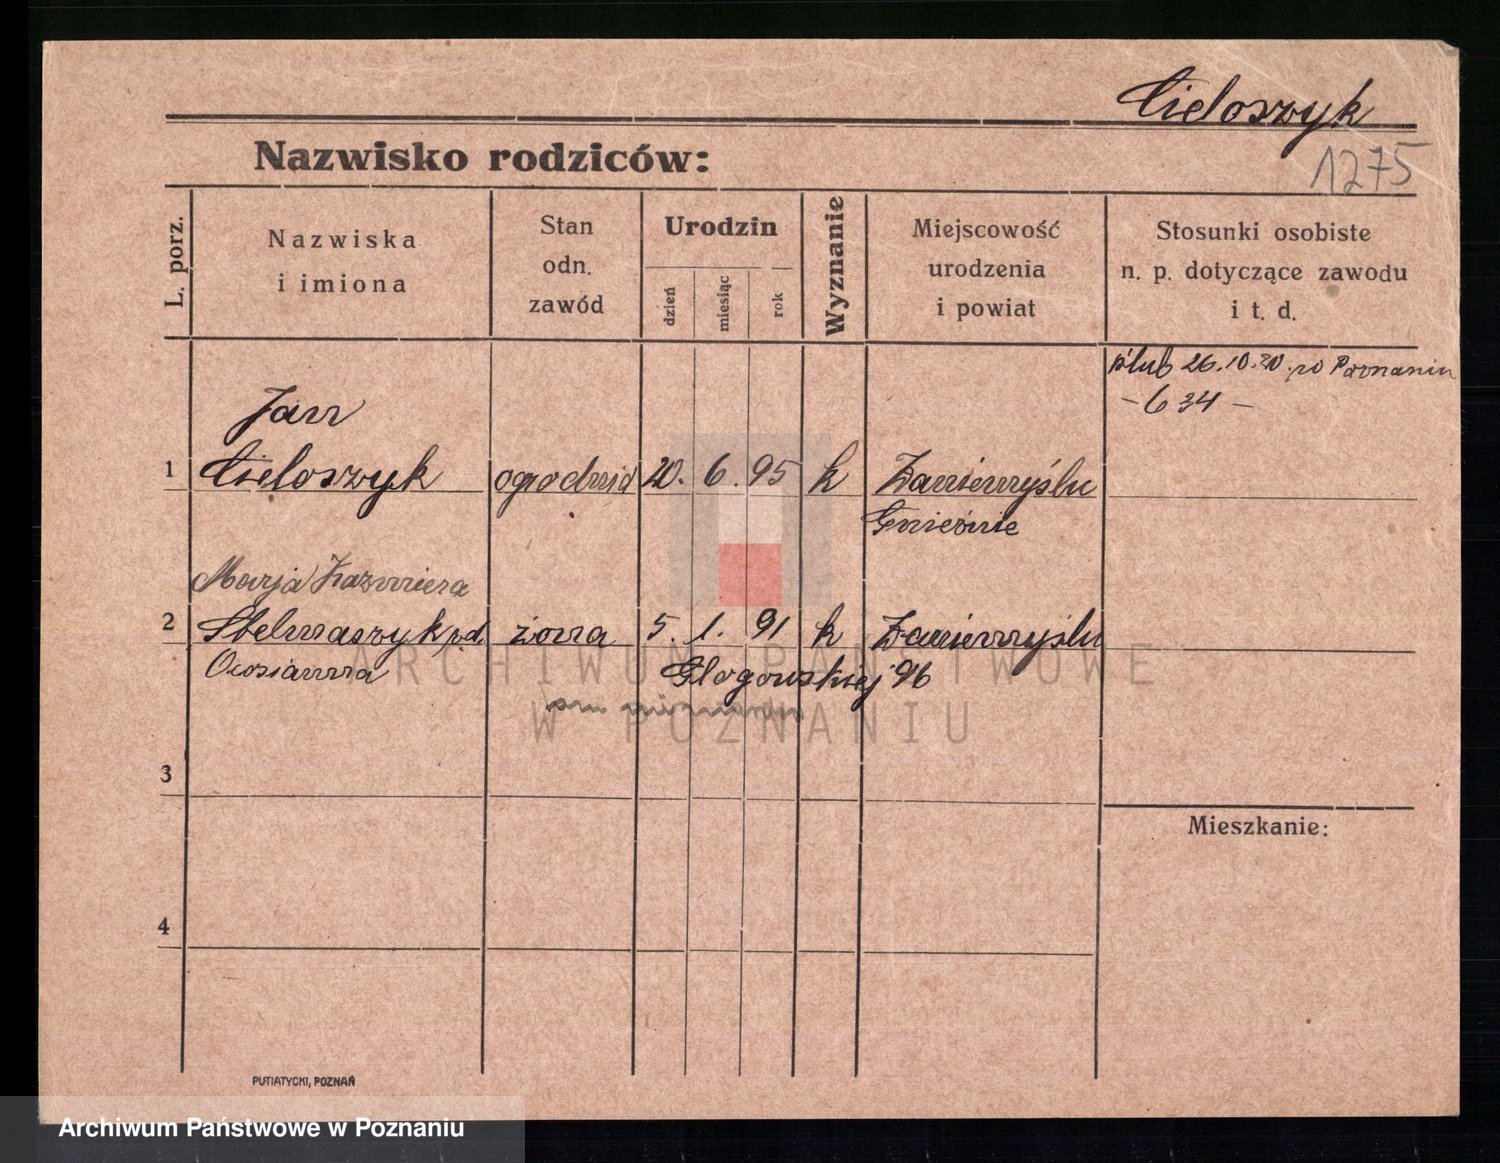 Cieloszyk
Nazwisko rodziców:
1275
L. porz.
Nazwiska
i imiona
Stan
odn.
zawód
Urodzin
dzień
miesiąc
rok
Wyznanie
Miejscowość
urodzenia
i powiat
Stosunki osobiste
n. p. dotyczące zawodu
i t. d.
ślub 26.10.20. w Poznaniu
- 634 -
Jan
1 Cieloszyk ogrodnik 20. 6. 95 k Zaniemyślu
Gnieźnie
Marja Kazimiera
2 Stelmaszyk żona 5. 1. 91 k Zaniemyślu
Głogowskiej 96
3
Mieszkanie:
4
PUTIATYCKI, POZNAŃ
ARCHIWUM PAŃSTWOWE
W POZNANIU
Archiwum Państwowe w Poznaniu